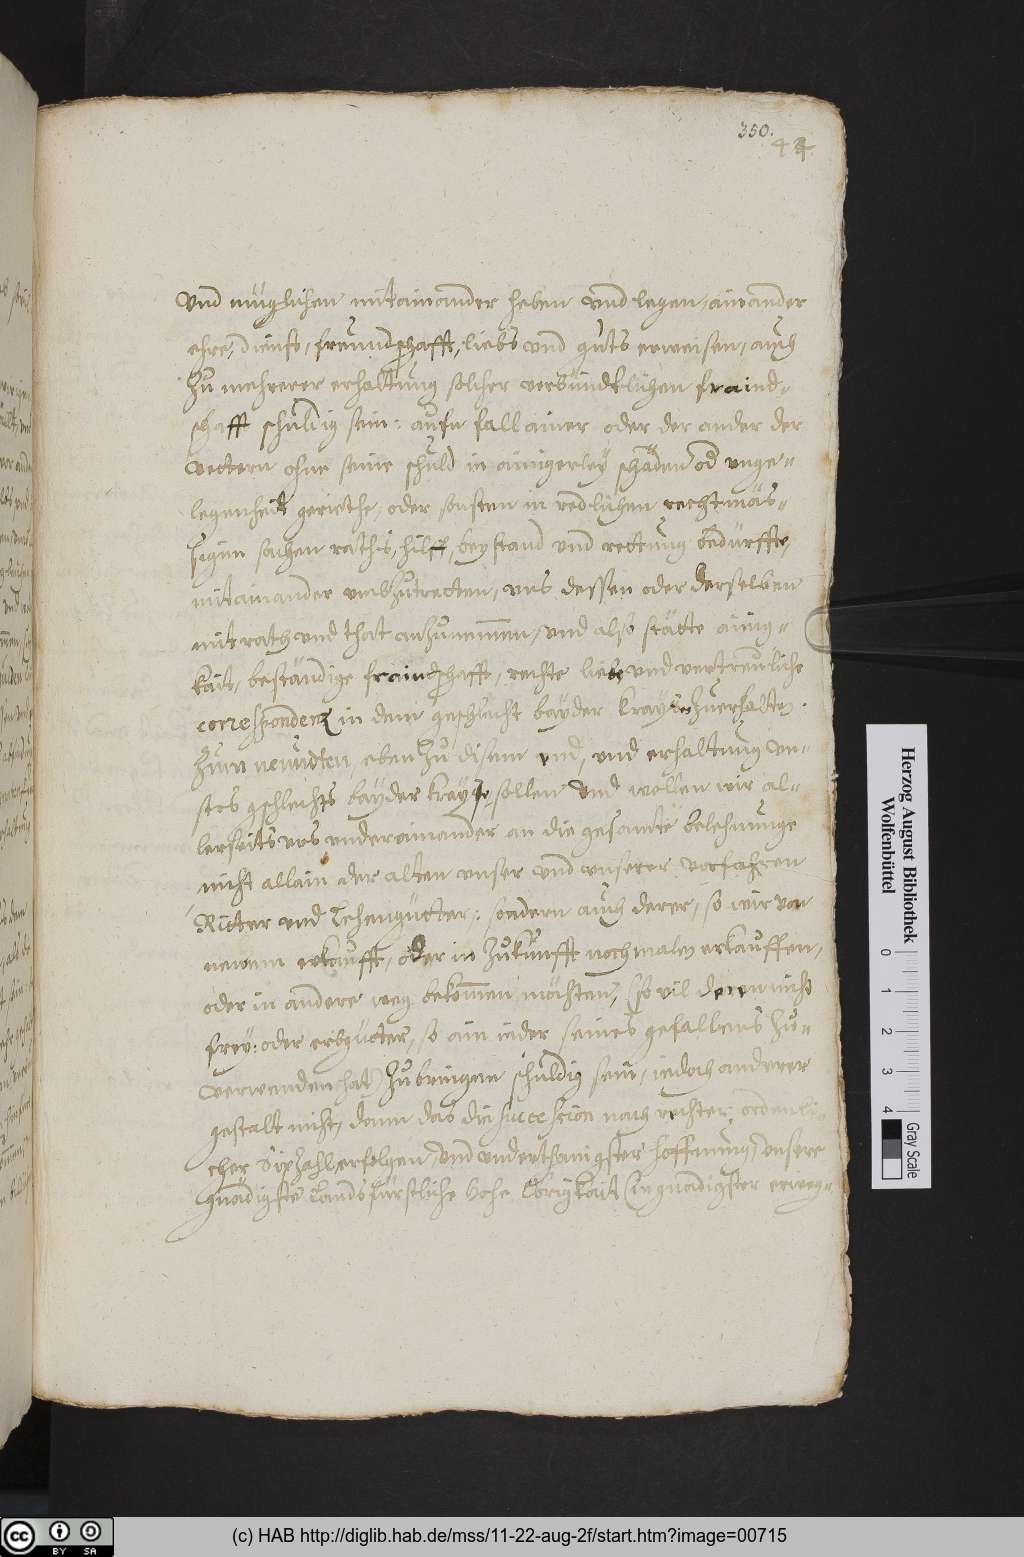 350.
44
vnd müglichen mitainander heben vnd legen, ainander
ehre, dienst, freundschafft, liebs vnd guts erweisen, auch
zu mehrerer erhaltung solcher verbündtlichen fraind-
schafft schuldig sein: aufn fall ainer oder der ander der
vettern ohne seine schuld in ainigerley schäden od vnge-
legenheit geriethe, oder sonsten in redlichen rechtmäs-
sigen sachen raths, hilff, beystand vnd rettung bedürffte,
mitainander vmbzutretten, vns dessen oder derselben
mit rath vnd that anzunemmen, vnd also stätte ainig-
kait, beständige fraindschafft, rechte liebe vnd vertreuliche
correspondenz in dem geschlecht bayder Krayse zuerhalten.
Zum neundten, eben zu disem end, vnd erhaltung vn-
sers gschlechts bayder Krayse, sollen vnd wollen wir al-
lerseits vns vndereinander an die gesamte belehnunge
nicht allain der alten vnser vnd vnserer vorfahren
Ritter vnd Lehengütter: sondern auch derer, so wir von
newem erkaufft, oder in Zukunfft nochmalen erkauffen,
oder in andere weg bekommen möchten, (so vil deren nicht
frey: oder erbgütter, so ain ieder seines gefallens zu-
verwenden hat) zubringen schuldig sein, iedoch anderer
gestalt nicht, dann das die succession nach rechter ordenli-
cher Sipzahl erfolgen, vnd vnderthänigster hoffnung, vnsere
gnädigste Landsfürstliche Hohe Obrigkait (in gnädigster erweg-
Herzog August Bibliothek
Wolfenbüttel
0 1 2 3 4
Gray Scale
cc BY SA
(c) HAB http://diglib.hab.de/mss/11-22-aug-2f/start.htm?image=00715